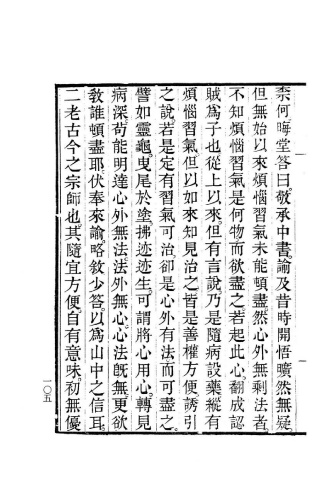 柰何晦堂答曰敬承中書諭及昔時開悟曠然無疑
但無始以來煩惱習氣未能頓盡然心外無剩法者
不知煩惱習氣是何物而欲盡之若起此心翻成認
賊為子也從上以來但有言說乃是隨病設藥縱有
煩惱習氣但以如來知見治之皆是善權方便誘引
之說若是定有習氣可治卻是心外有法而可盡之
譬如靈龜曳尾於塗拂迹迹生可謂將心用心轉見
病深苟能明達心外無法法外無心心法旣無更欲
敎誰頓盡耶伏奉來諭略敘少答以為山中之信耳
二老古今之宗師也其隨宜方便自有意味初無優
一〇五